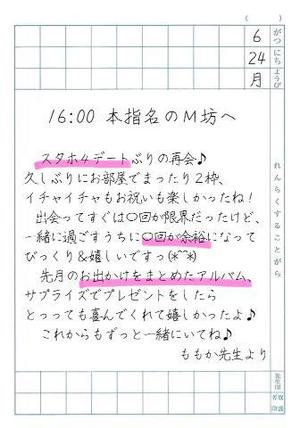 ( )
6 がつ
24 にち
月 ようび
16:00 本指名のM坊へ
スタホ4デートぶりの再会♪
久しぶりにお部屋でまったり2枠、
イチャイチャもお祝いも楽しかったね！
出会ってすぐは〇回が限界だったけど、
一緒に過ごすうちに〇回が余裕になって
びっくり&嬉しいですっ(*^^*)
先月のお出かけをまとめたアルバム、
サプライズでプレゼントをしたら
とっっても喜んでくれて嬉しかったよ♪
これからもずっと一緒にいてね♪
ももか先生より
れんらくすることがら